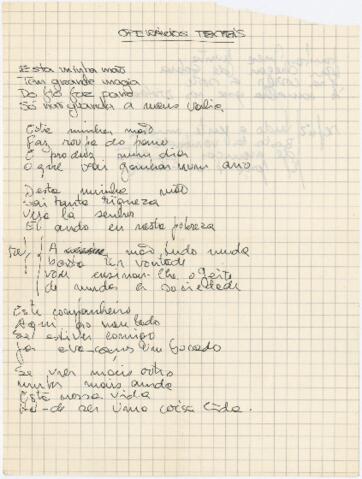 OPERÁRIOS TEXTEIS
Esta minha mão
Tem grande magia
Do fio faz pano
Só não guarda a mais valia
Esta minha mão
Faz roupa do pano
E produz num dia
O que vai ganhar num ano
Desta minha mão
Sai tanta riqueza
Veja lá senhor
Eu ando eu nesta pobreza
A mão tudo muda
basta ter vontade
vou ensinar-lhe o jeito
de mudar a sociedade
Este companheiro
Aqui ao meu lado
Se estiver comigo
já avançamos um bocado
Se vier mais outro
muitos mais ainda
Esta nossa vida
Há-de ser uma coisa linda.